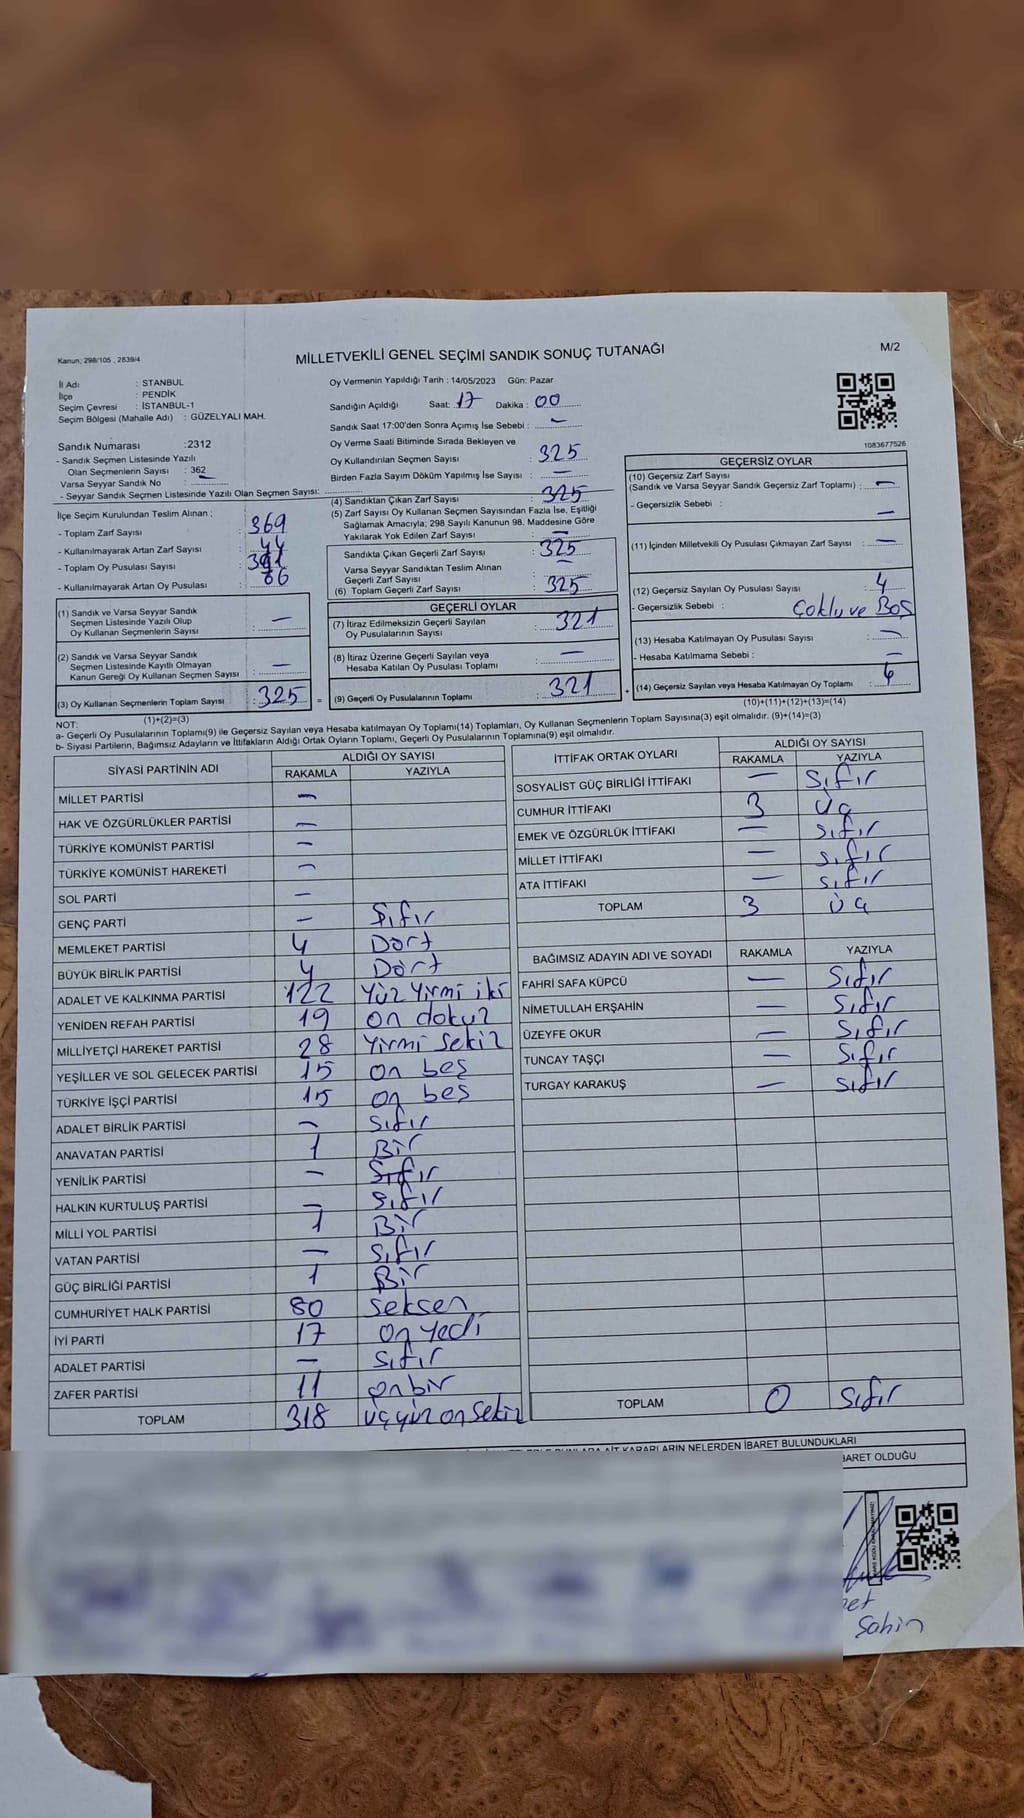 Kanun; 298/105 , 2839/4
MİLLETVEKİLİ GENEL SEÇİMİ SANDIK SONUÇ TUTANAĞI
M/2
İl Adı : STANBUL
İlçe : PENDİK
Seçim Çevresi : İSTANBUL-1
Seçim Bölgesi (Mahalle Adı) : GÜZELYALI MAH.
Sandık Numarası :2312
- Sandık Seçmen Listesinde Yazılı
Olan Seçmenlerin Sayısı : 362
Varsa Seyyar Sandık No : —
- Seyyar Sandık Seçmen Listesinde Yazılı Olan Seçmen Sayısı:
Oy Vermenin Yapıldığı Tarih : 14/05/2023 Gün: Pazar
Sandığın Açıldığı Saat: 17 Dakika : 00
Sandık Saat 17:00'den Sonra Açımış İse Sebebi : —
Oy Verme Saati Bitiminde Sırada Bekleyen ve
Oy Kullandırılan Seçmen Sayısı : 325
Birden Fazla Sayım Döküm Yapılmış İse Sayısı : —
1083677526
İlçe Seçim Kurulundan Teslim Alınan ;
- Toplam Zarf Sayısı : 369
- Kullanılmayarak Artan Zarf Sayısı : 44
- Toplam Oy Pusulası Sayısı :
- Kullanılmayarak Artan Oy Pusulası :
(1) Sandık ve Varsa Seyyar Sandık
Seçmen Listesinde Yazılı Olup
Oy Kullanan Seçmenlerin Sayısı : —
(2) Sandık ve Varsa Seyyar Sandık
Seçmen Listesinde Kayıtlı Olmayan
Kanun Gereği Oy Kullanan Seçmen Sayısı : —
(3) Oy Kullanan Seçmenlerin Toplam Sayısı : 325 =
(1)+(2)=(3)
(4) Sandıktan Çıkan Zarf Sayısı : 325
(5) Zarf Sayısı Oy Kullanan Seçmen Sayısından Fazla İse, Eşitliği
Sağlamak Amacıyla; 298 Sayılı Kanunun 98. Maddesine Göre
Yakılarak Yok Edilen Zarf Sayısı : —
Sandıkta Çıkan Geçerli Zarf Sayısı : 325
Varsa Seyyar Sandıktan Teslim Alınan
Geçerli Zarf Sayısı : —
(6) Toplam Geçerli Zarf Sayısı : 325
GEÇERLİ OYLAR
(7) İtiraz Edilmeksizin Geçerli Sayılan
Oy Pusulalarının Sayısı : 321
(8) İtiraz Üzerine Geçerli Sayılan veya
Hesaba Katılan Oy Pusulası Toplamı : —
(9) Geçerli Oy Pusulalarının Toplamı : 321 +
GEÇERSİZ OYLAR
(10) Geçersiz Zarf Sayısı
(Sandık ve Varsa Seyyar Sandık Geçersiz Zarf Toplamı) : —
- Geçersizlik Sebebi : —
(11) İçinden Milletvekili Oy Pusulası Çıkmayan Zarf Sayısı : —
(12) Geçersiz Sayılan Oy Pusulası Sayısı : 4
- Geçersizlik Sebebi : Çoklu ve Boş
(13) Hesaba Katılmayan Oy Pusulası Sayısı : —
- Hesaba Katılmama Sebebi : —
(14) Geçersiz Sayılan veya Hesaba Katılmayan Oy Toplamı : 4
(10)+(11)+(12)+(13)=(14)
NOT:
a- Geçerli Oy Pusulalarının Toplamı(9) ile Geçersiz Sayılan veya Hesaba katılmayan Oy Toplamı(14) Toplamları, Oy Kullanan Seçmenlerin Toplam Sayısına(3) eşit olmalıdır. (9)+(14)=(3)
b- Siyasi Partilerin, Bağımsız Adayların ve İttifakların Aldığı Ortak Oyların Toplamı, Geçerli Oy Pusulalarının Toplamına(9) eşit olmalıdır.
SİYASİ PARTİNİN ADI ALDIĞI OY SAYISI
RAKAMLA YAZIYLA
MİLLET PARTİSİ —
HAK VE ÖZGÜRLÜKLER PARTİSİ —
TÜRKİYE KOMÜNİST PARTİSİ —
TÜRKİYE KOMÜNİST HAREKETİ —
SOL PARTİ —
GENÇ PARTİ — Sıfır
MEMLEKET PARTİSİ 4 Dört
BÜYÜK BİRLİK PARTİSİ 4 Dört
ADALET VE KALKINMA PARTİSİ 122 Yüz Yirmi iki
YENİDEN REFAH PARTİSİ 19 on dokuz
MİLLİYETÇİ HAREKET PARTİSİ 28 Yirmi sekiz
YEŞİLLER VE SOL GELECEK PARTİSİ 15 on beş
TÜRKİYE İŞÇİ PARTİSİ 15 on beş
ADALET BİRLİK PARTİSİ — sıfır
ANAVATAN PARTİSİ 1 Bir
YENİLİK PARTİSİ — Sıfır
HALKIN KURTULUŞ PARTİSİ — sıfır
MİLLİ YOL PARTİSİ 1 Bir
VATAN PARTİSİ — sıfır
GÜÇ BİRLİĞİ PARTİSİ 1 Bir
CUMHURİYET HALK PARTİSİ 80 seksen
İYİ PARTİ 17 on yedi
ADALET PARTİSİ — sıfır
ZAFER PARTİSİ 11 onbir
TOPLAM 318 üç yüz on sekiz
İTTİFAK ORTAK OYLARI ALDIĞI OY SAYISI
RAKAMLA YAZIYLA
SOSYALİST GÜÇ BİRLİĞİ İTTİFAKI — Sıfır
CUMHUR İTTİFAKI 3 üç
EMEK VE ÖZGÜRLÜK İTTİFAKI — sıfır
MİLLET İTTİFAKI — sıfır
ATA İTTİFAKI — sıfır
TOPLAM 3 üç
BAĞIMSIZ ADAYIN ADI VE SOYADI RAKAMLA YAZIYLA
FAHRİ SAFA KÜPCÜ — Sıfır
NİMETULLAH ERŞAHİN — Sıfır
ÜZEYFE OKUR — Sıfır
TUNCAY TAŞÇI — Sıfır
TURGAY KARAKUŞ — sıfır
TOPLAM 0 sıfır
AİT KARARLARIN NELERDEN İBARET BULUNDUKLARI
İBARET OLDUĞU
Şahin